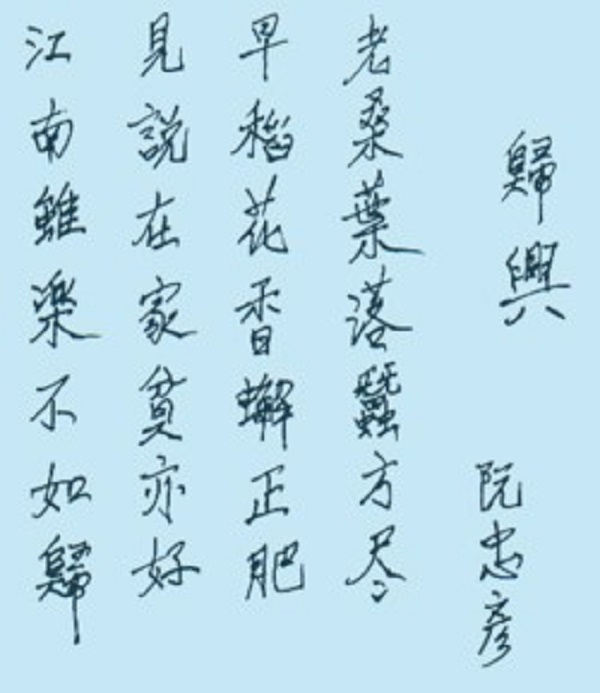 歸興
阮忠彥
老桑葉落蠶方尽
早稻花香蠏正肥
見說在家貧亦好
江南雖楽不如歸